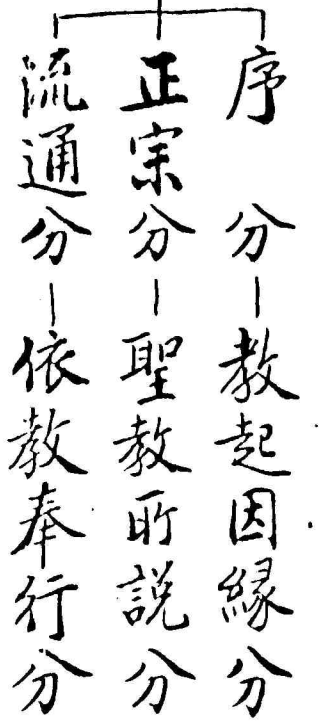 序分—教起因緣分
正宗分—聖教所説分
流通分—依教奉行分